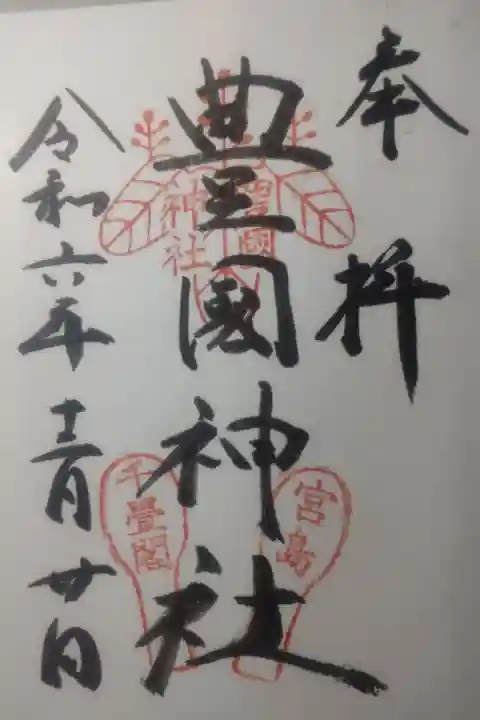 奉拝
豊國神社
豊國
神社
宮島
千畳閣
令和六年十二月廿日